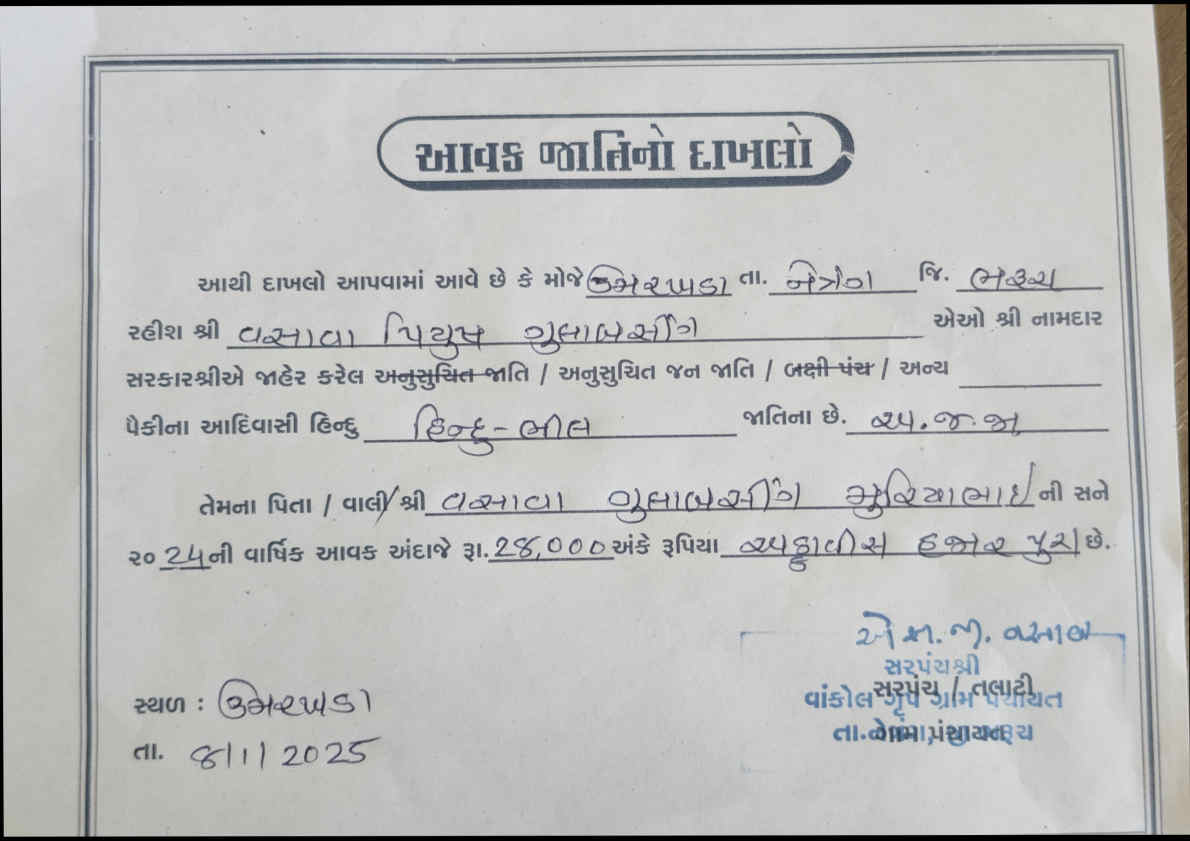 આવક જાતિનો દાખલો
આથી દાખલો આપવામાં આવે છે કે મોજે ઉમરખડા તા. નેત્રંગ જિ. ભરૂચ
રહીશ શ્રી વસાવા પિયુષ ગુલાબસીંગ એઓ શ્રી નામદાર
સરકારશ્રીએ જાહેર કરેલ અનુસુચિત જાતિ / અનુસુચિત જન જાતિ / બક્ષી પંચ / અન્ય
પૈકીના આદિવાસી હિન્દુ હિન્દુ-ભીલ જાતિના છે. અ.જ.જા
તેમના પિતા / વાલી શ્રી વસાવા ગુલાબસીંગ મુરિયાભાઇ ની સને
૨૦ 24 ની વાર્ષિક આવક અંદાજે રૂા. 28,000 અંકે રૂપિયા અઠ્ઠાવીસ હજાર પુરા છે.
વસાવા
સરપંચશ્રી
સ્થળ : ઉમરખડા
સરપંચ / તલાટી
વાંકોલ ગૃપ ગ્રામ પંચાયત
તા. 8/1/2025
ગ્રામ પંચાયત